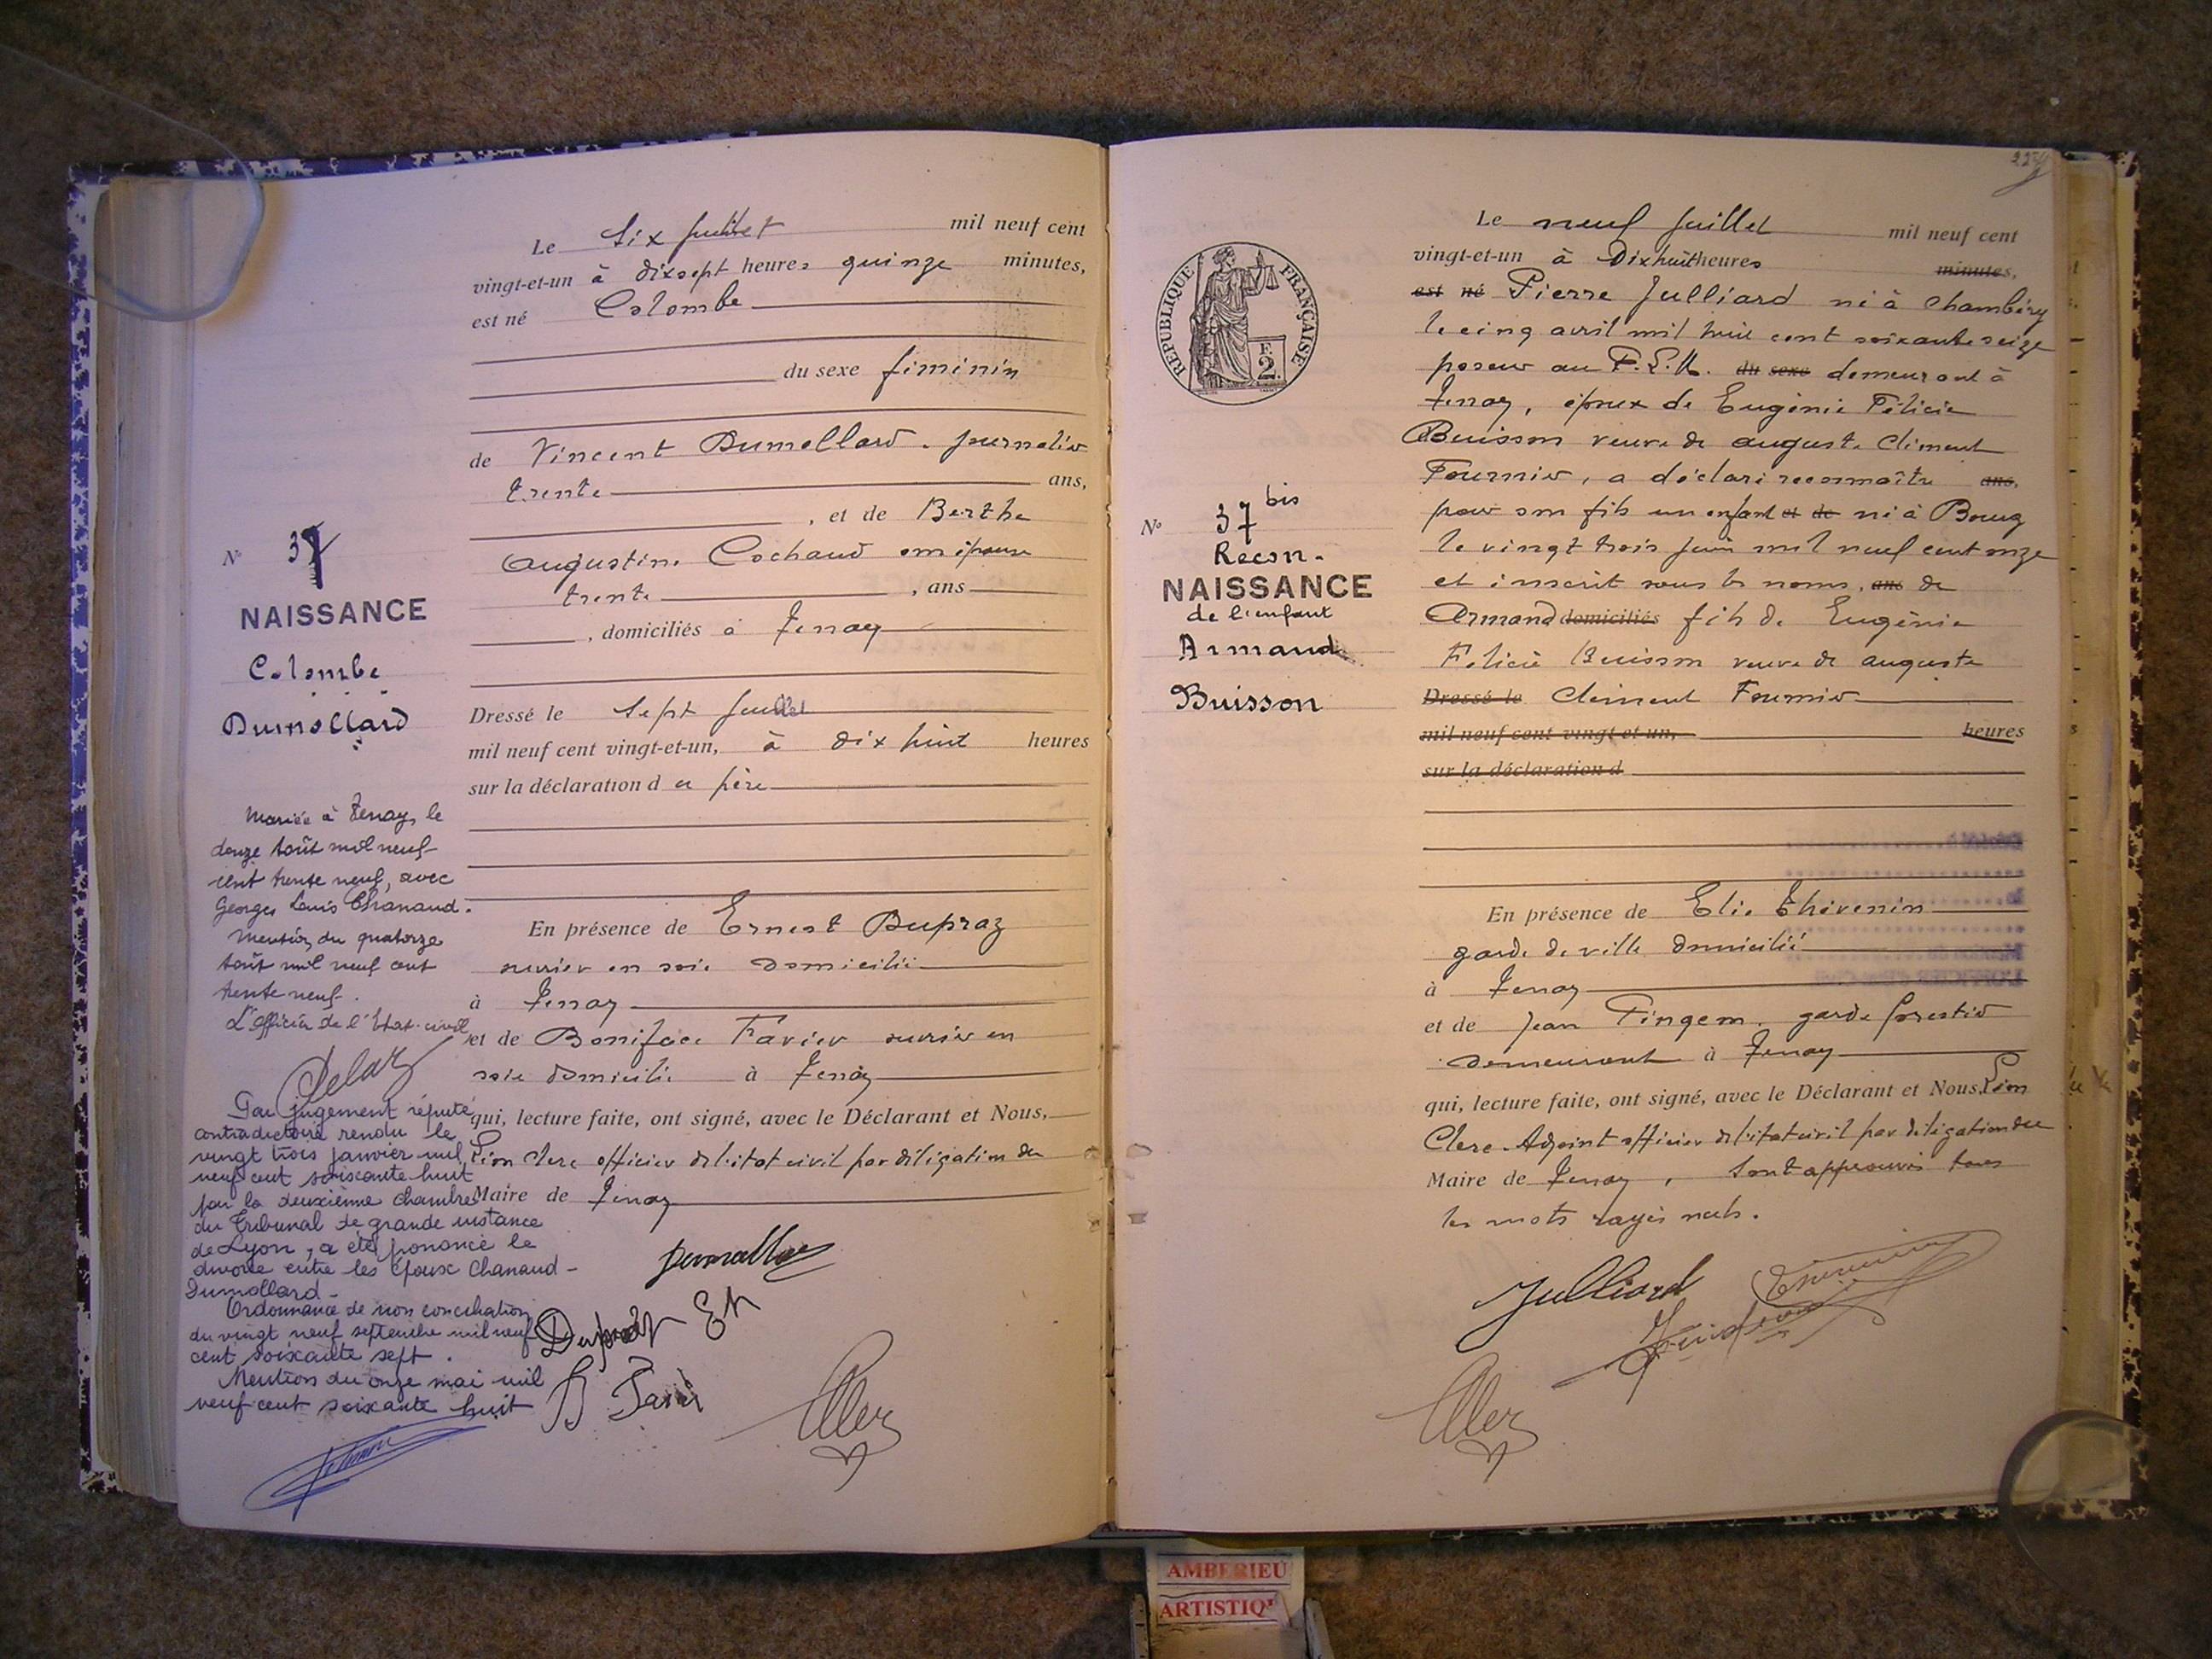 Le six juillet mil neuf cent
vingt-et-un à dixsept heures quinze minutes,
est né Colombe
du sexe féminin
de Vincent Dumollard. journalier
trente ans,
, et de Berthe
Augustine Cochaud son épouse
trente , ans
, domiciliés à Tenay
Dressé le sept juillet
mil neuf cent vingt-et-un, à dix huit heures
sur la déclaration d u père
En présence de Ernest Dupraz
ouvrier en soie domicilié
à Tenay
et de Boniface Favier ouvrier en
soie domicilié à Tenay
qui, lecture faite, ont signé, avec le Déclarant et Nous,
Léon Clerc officier de l'état civil par délégation du
Maire de Tenay
Dumollard
Dupraz En
B Favier
N° 37
NAISSANCE
Colombe
Dumollard
Mariée à Tenay, le
douze août mil neuf
cent trente neuf, avec
Georges Louis Chanaud.
Mention du quatorze
août mil neuf cent
trente neuf.
L'officier de l'Etat-civil
Par jugement réputé
contradictoire rendu le
vingt trois janvier mil
neuf cent soixante huit
par la deuxième chambre
du Tribunal de grande instance
de Lyon, a été prononcé le
divorce entre les époux Chanaud-
Dumollard.
Ordonnance de non conciliation
du vingt neuf septembre mil neuf
cent soixante sept.
Mention du onze mai mil
neuf cent soixante huit
RÉPUBLIQUE FRANÇAISE
F.
2.
N° 37 bis
Recon.
NAISSANCE
de l'enfant
Armand
Buisson
Le neuf juillet mil neuf cent
vingt-et-un à Dixhuit heures minutes,
est né Pierre Julliard né à Chambéry
le cinq avril mil huit cent soixante seize
poseur au P.L.M. du sexe demeurant à
Tenay, époux de Eugénie Félicie
Buisson veuve de Auguste Clément
Fournier, a déclaré reconnaître ans,
pour son fils un enfant et de né à Bourg
le vingt trois juin mil neuf cent onze
et inscrit sous les noms, ans de
Armand domiciliés fils de Eugénie
Félicie Buisson veuve de Auguste
Dressé le Clément Fournier
mil neuf cent vingt et un, heures
sur la déclaration d
En présence de Elie Thévenin
garde de ville domicilié
à Tenay
et de Jean Pingeon. garde forestier
demeurant à Tenay
qui, lecture faite, ont signé, avec le Déclarant et Nous, Léon
Clerc. Adjoint officier de l'état civil par délégation du
Maire de Tenay, sont approuvés tous
les mots rayés nuls.
Julliard
AMBERIEU
ARTISTIQ